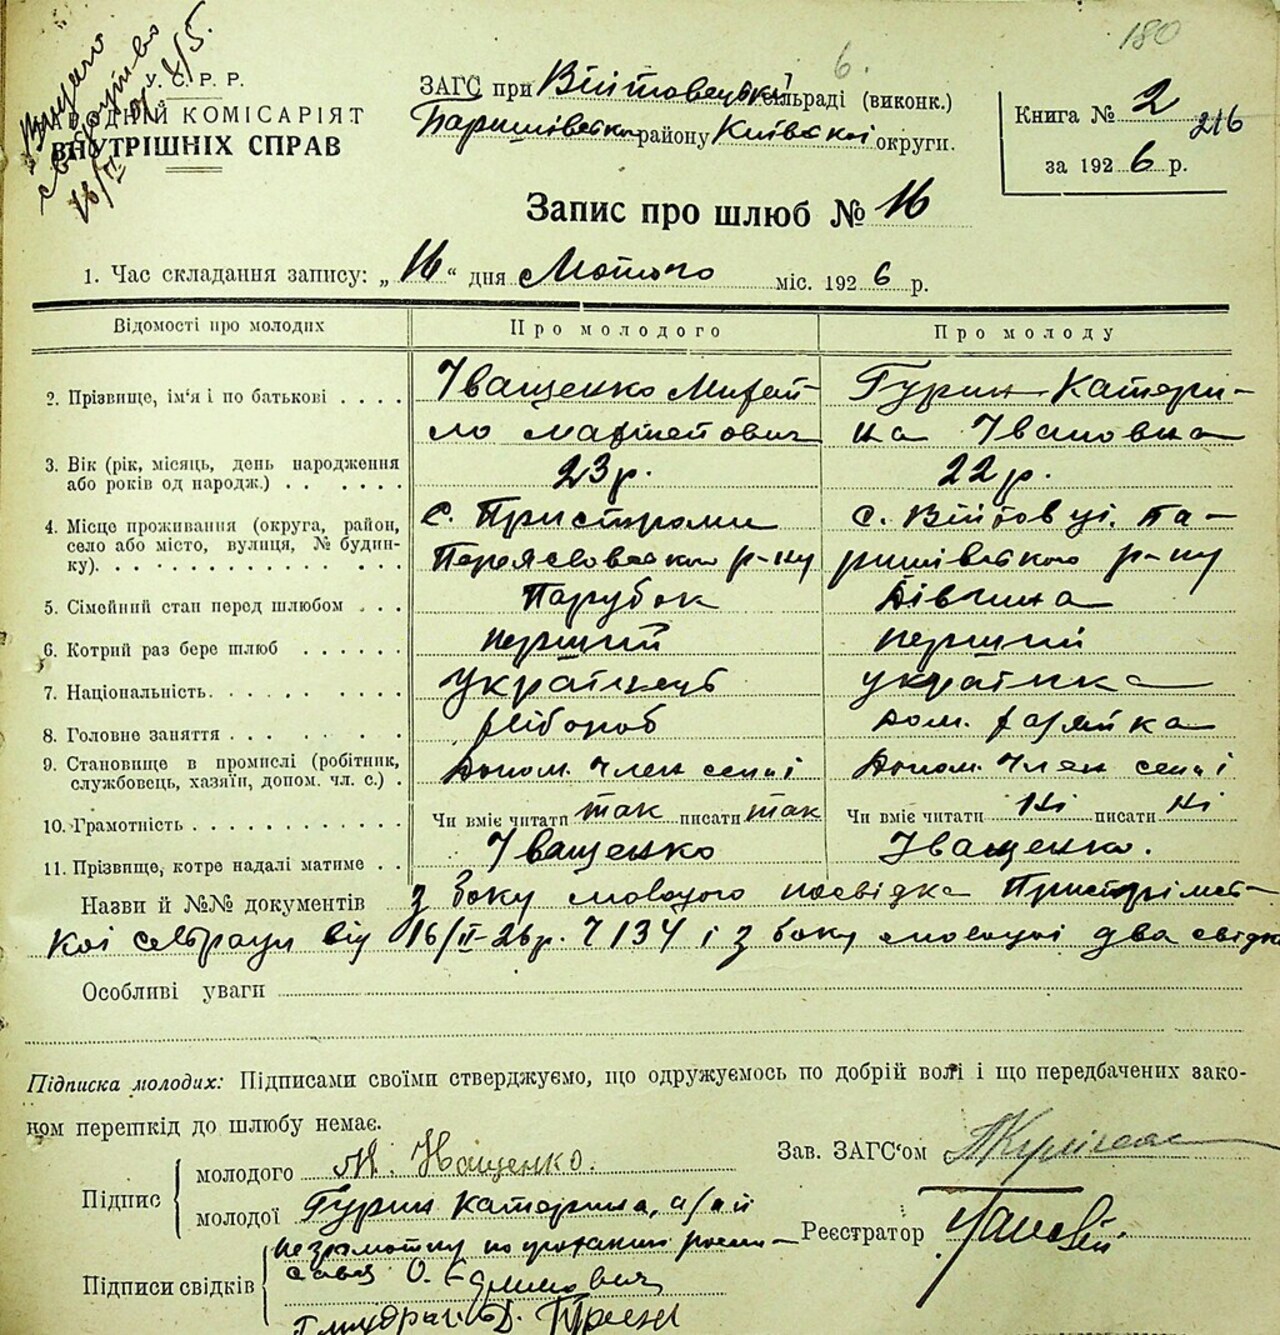 180
6.
Видано
У. С. Р. Р.
НАРОДНІЙ КОМІСАРІЯТ
ВНУТРІШНІХ СПРАВ
16/II
ЗАГС при Війтовецькій сільраді (виконк.)
Баришівського району Київської округи.
Книга № 2
216
за 1926 р.
Запис про шлюб № 16
1. Час складання запису: „16“ дня Лютого міс. 1926 р.
Відомості про молодих Про молодого Про молоду
2. Прізвище, ім'я і по батькові . . . . Іващенко Михай- Гурин Катери-
ло Ма Івановна
3. Вік (рік, місяць, день народження
або років од народж.) . . . . . . 23 р. 22 р.
4. Місце проживання (округа, район, с. Пристроми с. Війтовці. Ба-
село або місто, вулиця, № будин-
ку). . . . . . . . . . . . . . . Переяславського р-ну ришівського р-ну
5. Сімейний стан перед шлюбом . . . Парубок Дівчина
6. Котрий раз бере шлюб . . . . . . перший перший
7. Національність. . . . . . . . . українець українка
8. Головне заняття . . . . . . . хлібороб дом. хазяйка
9. Становище в промислі (робітник,
службовець, хазяїн, допом. чл. с.) . Допом. член семї Допом. член семї
10. Грамотність . . . . . . . . . . . Чи вміє читати так писати так Чи вміє читати Ні писати Ні
11. Прізвище, котре надалі матиме . . Іващенко Іващенко.
Назви й №№ документів З боку молодого посвідка Пристрімсь-
кої сільради від 16/II-26р. 134 і з боку молодої два свідки
Особливі уваги
Підписка молодих: Підписами своїми стверджуємо, що одружуємось по добрій волі і що передбачених зако-
ном перешкід до шлюбу немає.
Зав. ЗАГС'ом
Підпис
молодого М. Іващенко.
молодої Гурин Катерина, а за її
Реєстратор
неграмотну по проханню розпи-
Підписи свідків
сався О.
Д.